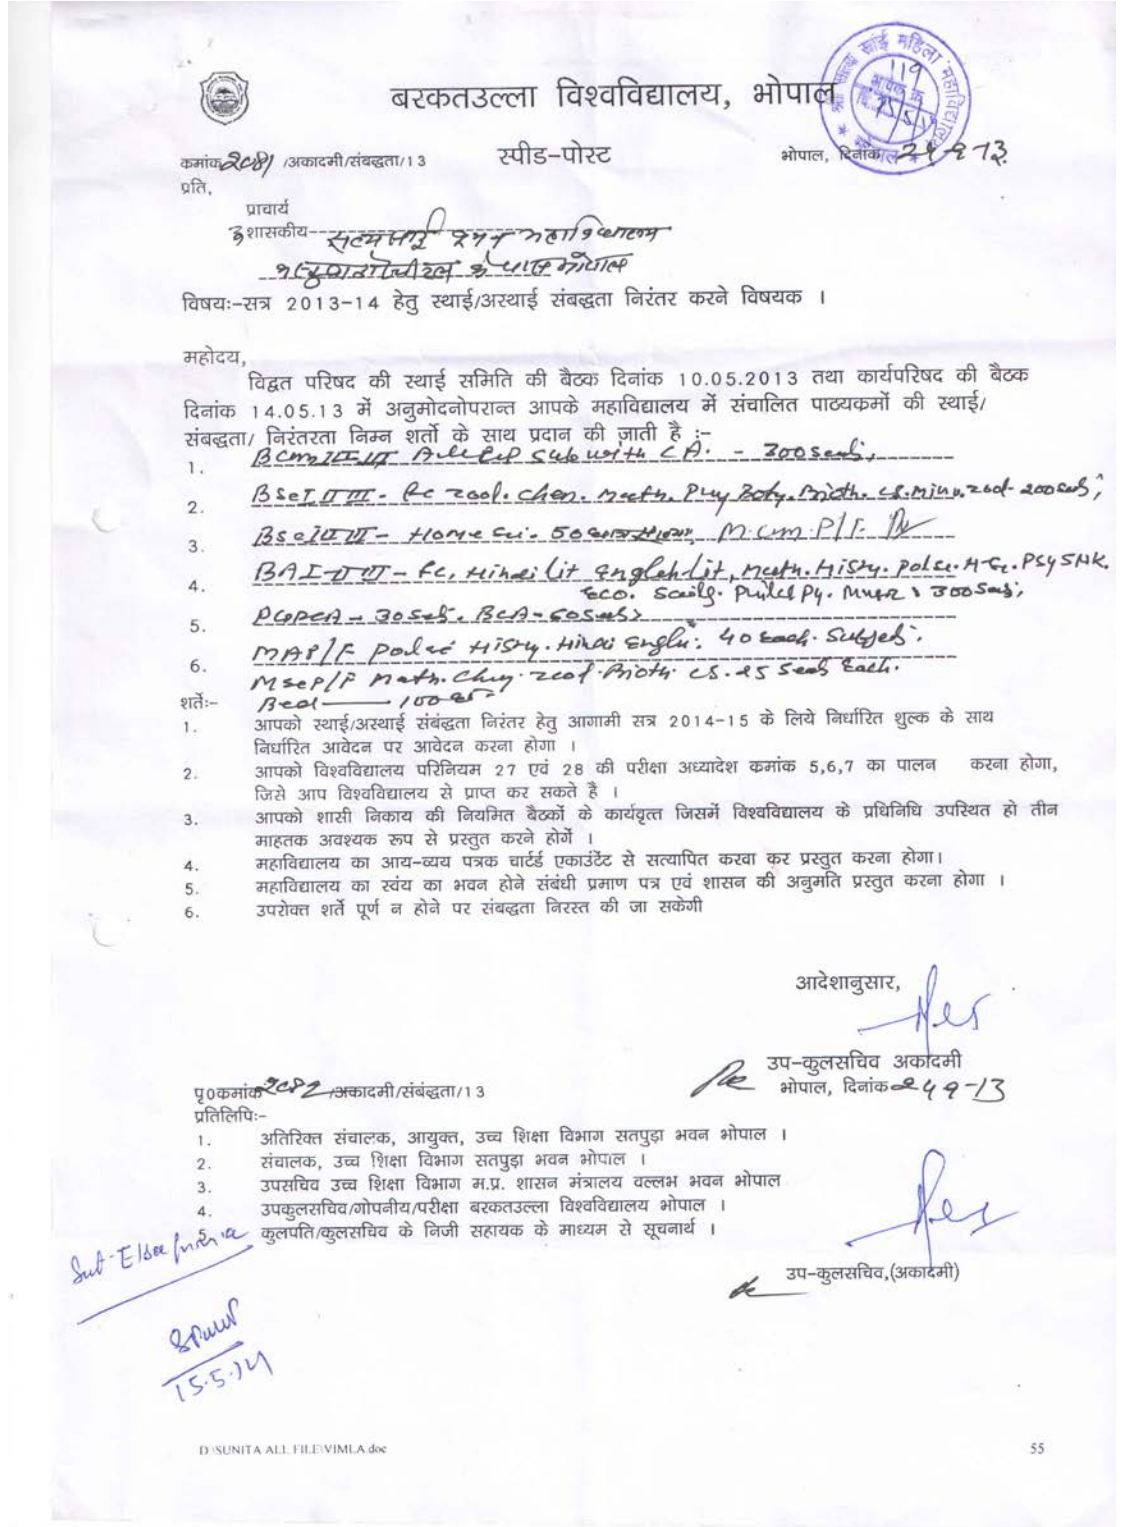 बरकतउल्ला विश्वविद्यालय, भोपाल
श्री सत्य साई महिला महाविद्यालय
भोपाल
119
आवक क्र.
कमांक 2081 /अकादमी/संबद्धता/13
स्पीड-पोस्ट
भोपाल, दिनांक 24-9-13
प्रति,
प्राचार्य
शासकीय
भोपाल
विषयः-सत्र 2013-14 हेतु स्थाई/अस्थाई संबद्धता निरंतर करने विषयक ।
महोदय,
विद्वत परिषद की स्थाई समिति की बैठक दिनांक 10.05.2013 तथा कार्यपरिषद की बैठक
दिनांक 14.05.13 में अनुमोदनोपरान्त आपके महाविद्यालय में संचालित पाठ्यकमों की स्थाई/
संबद्धता/ निरंतरता निम्न शर्तो के साथ प्रदान की जाती है :-
1. with CA. - 300 Seats,
2. BSc I II III - fc Zool. Chem. Math. Phy Boty. Bioth. CS. - 200
3. BSc I II III - Home Sci. 50 M.Com. P/F.
4. BA I II III - fc, Hindi lit English lit, Math. History. Pol Sc. H.Sc. PSY SNK.
ECO. 300
5. PGDCA - 30 BCA - 60
MA P/F History. Hindi 40 each
6. MSc P/F Math. Zool. Bioth. CS. 25 Seats Each.
शर्तेः-
Bed 100
1. आपको स्थाई/अस्थाई संबंद्धता निरंतर हेतु आगामी सत्र 2014-15 के लिये निर्धारित शुल्क के साथ
निर्धारित आवेदन पर आवेदन करना होगा ।
2. आपको विश्वविद्यालय परिनियम 27 एवं 28 की परीक्षा अध्यादेश कमांक 5,6,7 का पालन करना होगा,
जिसे आप विश्वविद्यालय से प्राप्त कर सकते है ।
3. आपको शासी निकाय की नियमित बैठकों के कार्यवृत्त जिसमें विश्वविद्यालय के प्रधिनिधि उपस्थित हो तीन
माहतक अवश्यक रूप से प्रस्तुत करने होगें ।
4. महाविद्यालय का आय-व्यय पत्रक चार्टर्ड एकाउंटेंट से सत्यापित करवा कर प्रस्तुत करना होगा।
5. महाविद्यालय का स्वंय का भवन होने संबंधी प्रमाण पत्र एवं शासन की अनुमति प्रस्तुत करना होगा ।
6. उपरोक्त शर्ते पूर्ण न होने पर संबद्धता निरस्त की जा सकेगी
आदेशानुसार,
उप-कुलसचिव अकादमी
पृ0कमांक 2082 /अकादमी/संबंद्धता/13
भोपाल, दिनांक 24 9-13
प्रतिलिपिः-
1. अतिरिक्त संचालक, आयुक्त, उच्च शिक्षा विभाग सतपुड़ा भवन भोपाल ।
2. संचालक, उच्च शिक्षा विभाग सतपुड़ा भवन भोपाल ।
3. उपसचिव उच्च शिक्षा विभाग म.प्र. शासन मंत्रालय वल्लभ भवन भोपाल
4. उपकुलसचिव/गोपनीय/परीक्षा बरकतउल्ला विश्वविद्यालय भोपाल ।
5. कुलपति/कुलसचिव के निजी सहायक के माध्यम से सूचनार्थ ।
उप-कुलसचिव,(अकादमी)
15.5.14
D:\SUNITA ALL FILE\VIMLA.doc
55